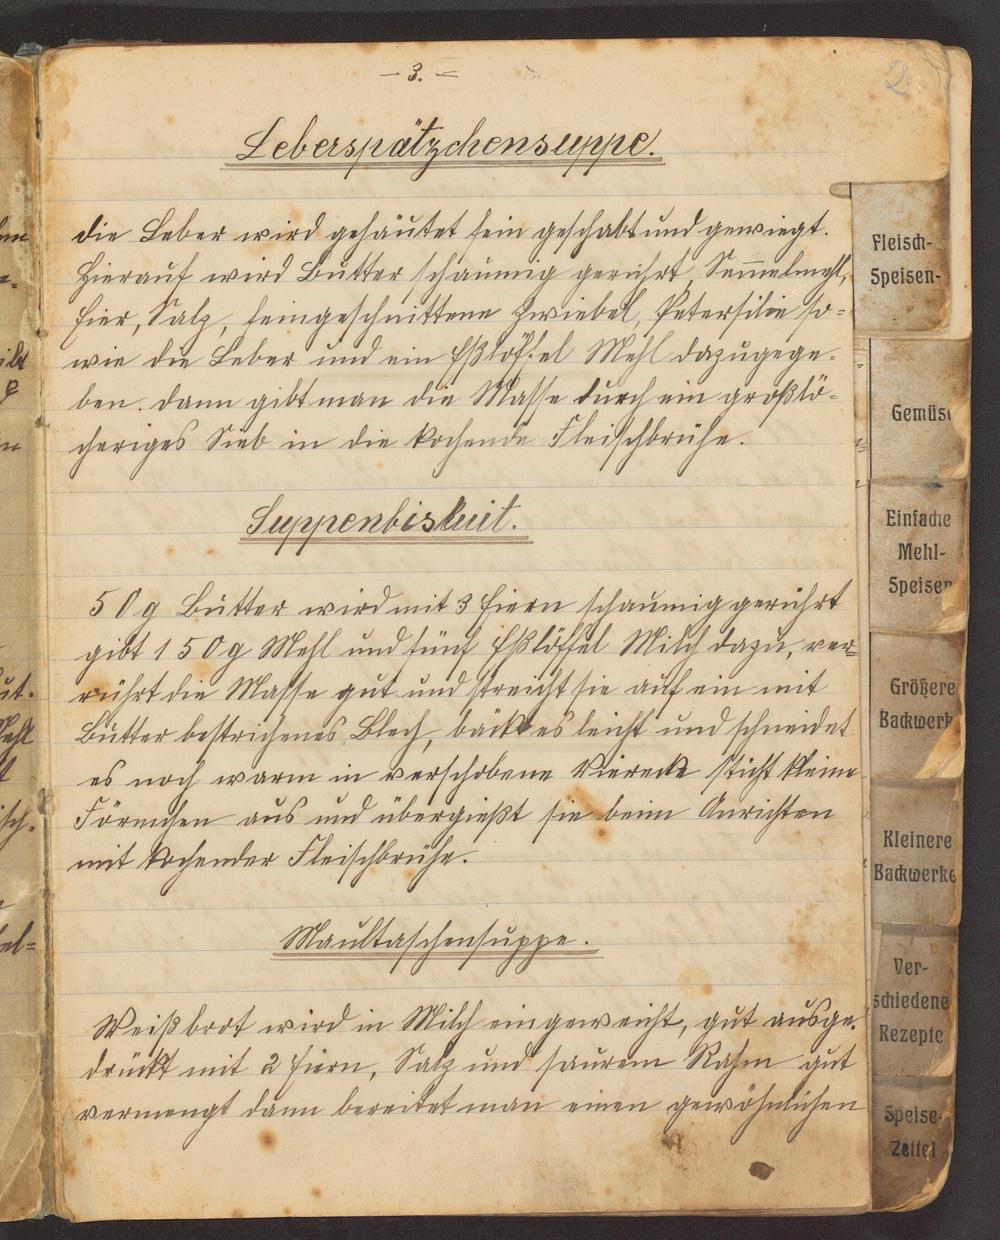 - 3. -
2
Leberspätzchensuppe.
die Leber wird gehäutet fein geschabt und gewiegt.
Hierauf wird Butter schaumig gerührt, Sem̅elmehl,
Eier, Salz, feingeschnittene Zwiebel, Petersilie so=
wie die Leber und ein Eßlöffel Mehl dazugege-
ben. dann gibt man die Masse durch ein großlö-
cheriges Sieb in die kochende Fleischbrühe.
Suppenbiskuit.
50g Butter wird mit 3 Eiern schaumig gerührt
gibt 150g Mehl und fünf Eßlöffel Milch dazu, ver=
rührt die Masse gut und streicht sie auf ein mit
Butter bestrichenes Blech, bäckt es leicht und schneidet
es noch warm in verschobene Vierecke sticht kleine
Förmchen aus und übergießt sie beim Anrichten
mit kochender Fleischbrühe.
Maultaschensuppe.
Weißbrot wird in Milch eingeweicht, gut ausge-
drückt mit 2 Eiern, Salz und saurem Rahm gut
vermengt dann bereitet man einen gewöhnlichen
Fleisch-
Speisen-
Gemüse
Einfache
Mehl-
Speisen
Größere
Backwerk
Kleinere
Backwerke
Ver-
schiedene
Rezepte
Speise-
Zettel